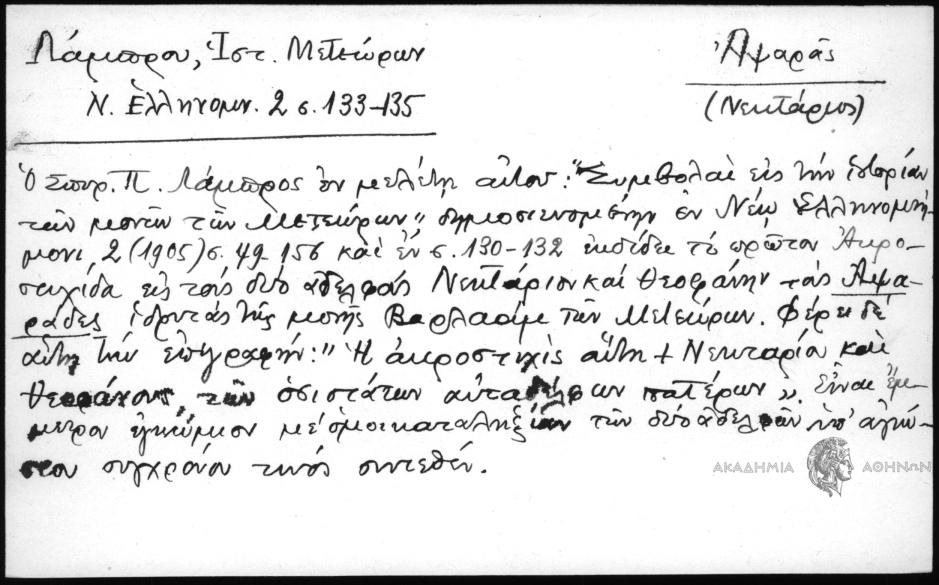 Λάμπρου, Ἱστ. Μετεώρων
Ἀψαρᾶς
Ν. Ἑλληνομν. 2 σ. 133-135
(Νεκτάριος)
Ὁ Σπυρ. Π. Λάμπρος ἐν μελέτῃ αὐτοῦ: "Συμβολαὶ εἰς τὴν ἱστορίαν
τῶν μονῶν τῶν Μετεώρων" δημοσιευομένην ἐν Νέῳ Ἑλληνομνή-
μονι, 2 (1905) σ. 49 156 καὶ ἐν σ. 130-132 ἐκδίδει τὸ πρῶτον Ἀκρο-
στιχίδα εἰς τοὺς δύο ἀδελφοὺς Νεκτάριον καὶ Θεοφάνην τοὺς Ἀψα-
ράδες ἱδρυτὰς τῆς μονῆς Βαρλαὰμ τῶν Μετεώρων. Φέρει δὲ
αὕτη τὴν ἐπιγραφήν: "Ἡ ἀκροστιχὶς αὕτη + Νεκταρίου καὶ
Θεοφάνους τῶν ὁσιοτάτων αὐταδέλφων πατέρων". Εἶναι ἔμ-
μετρον ἐγκώμιον μὲ ὁμοικαταληξίαν τῶν δύο ἀδελφῶν ὑπ' ἀγνώ-
στου συγχρόνου τινός συντεθέν.
ΑΚΑΔΗΜΙΑ ΑΘΗΝΩΝ